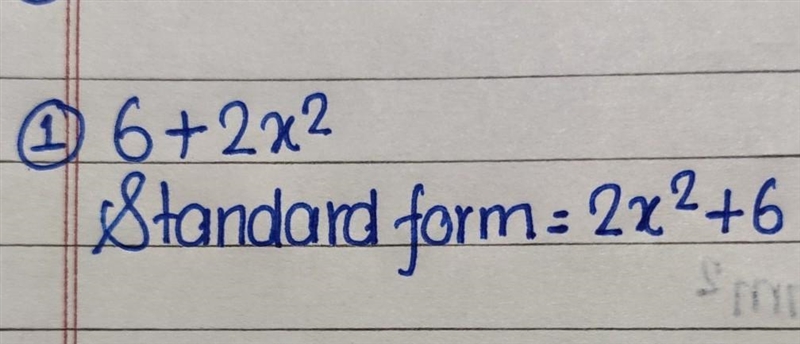 ① 6+2x²
Standard form = 2x²+6